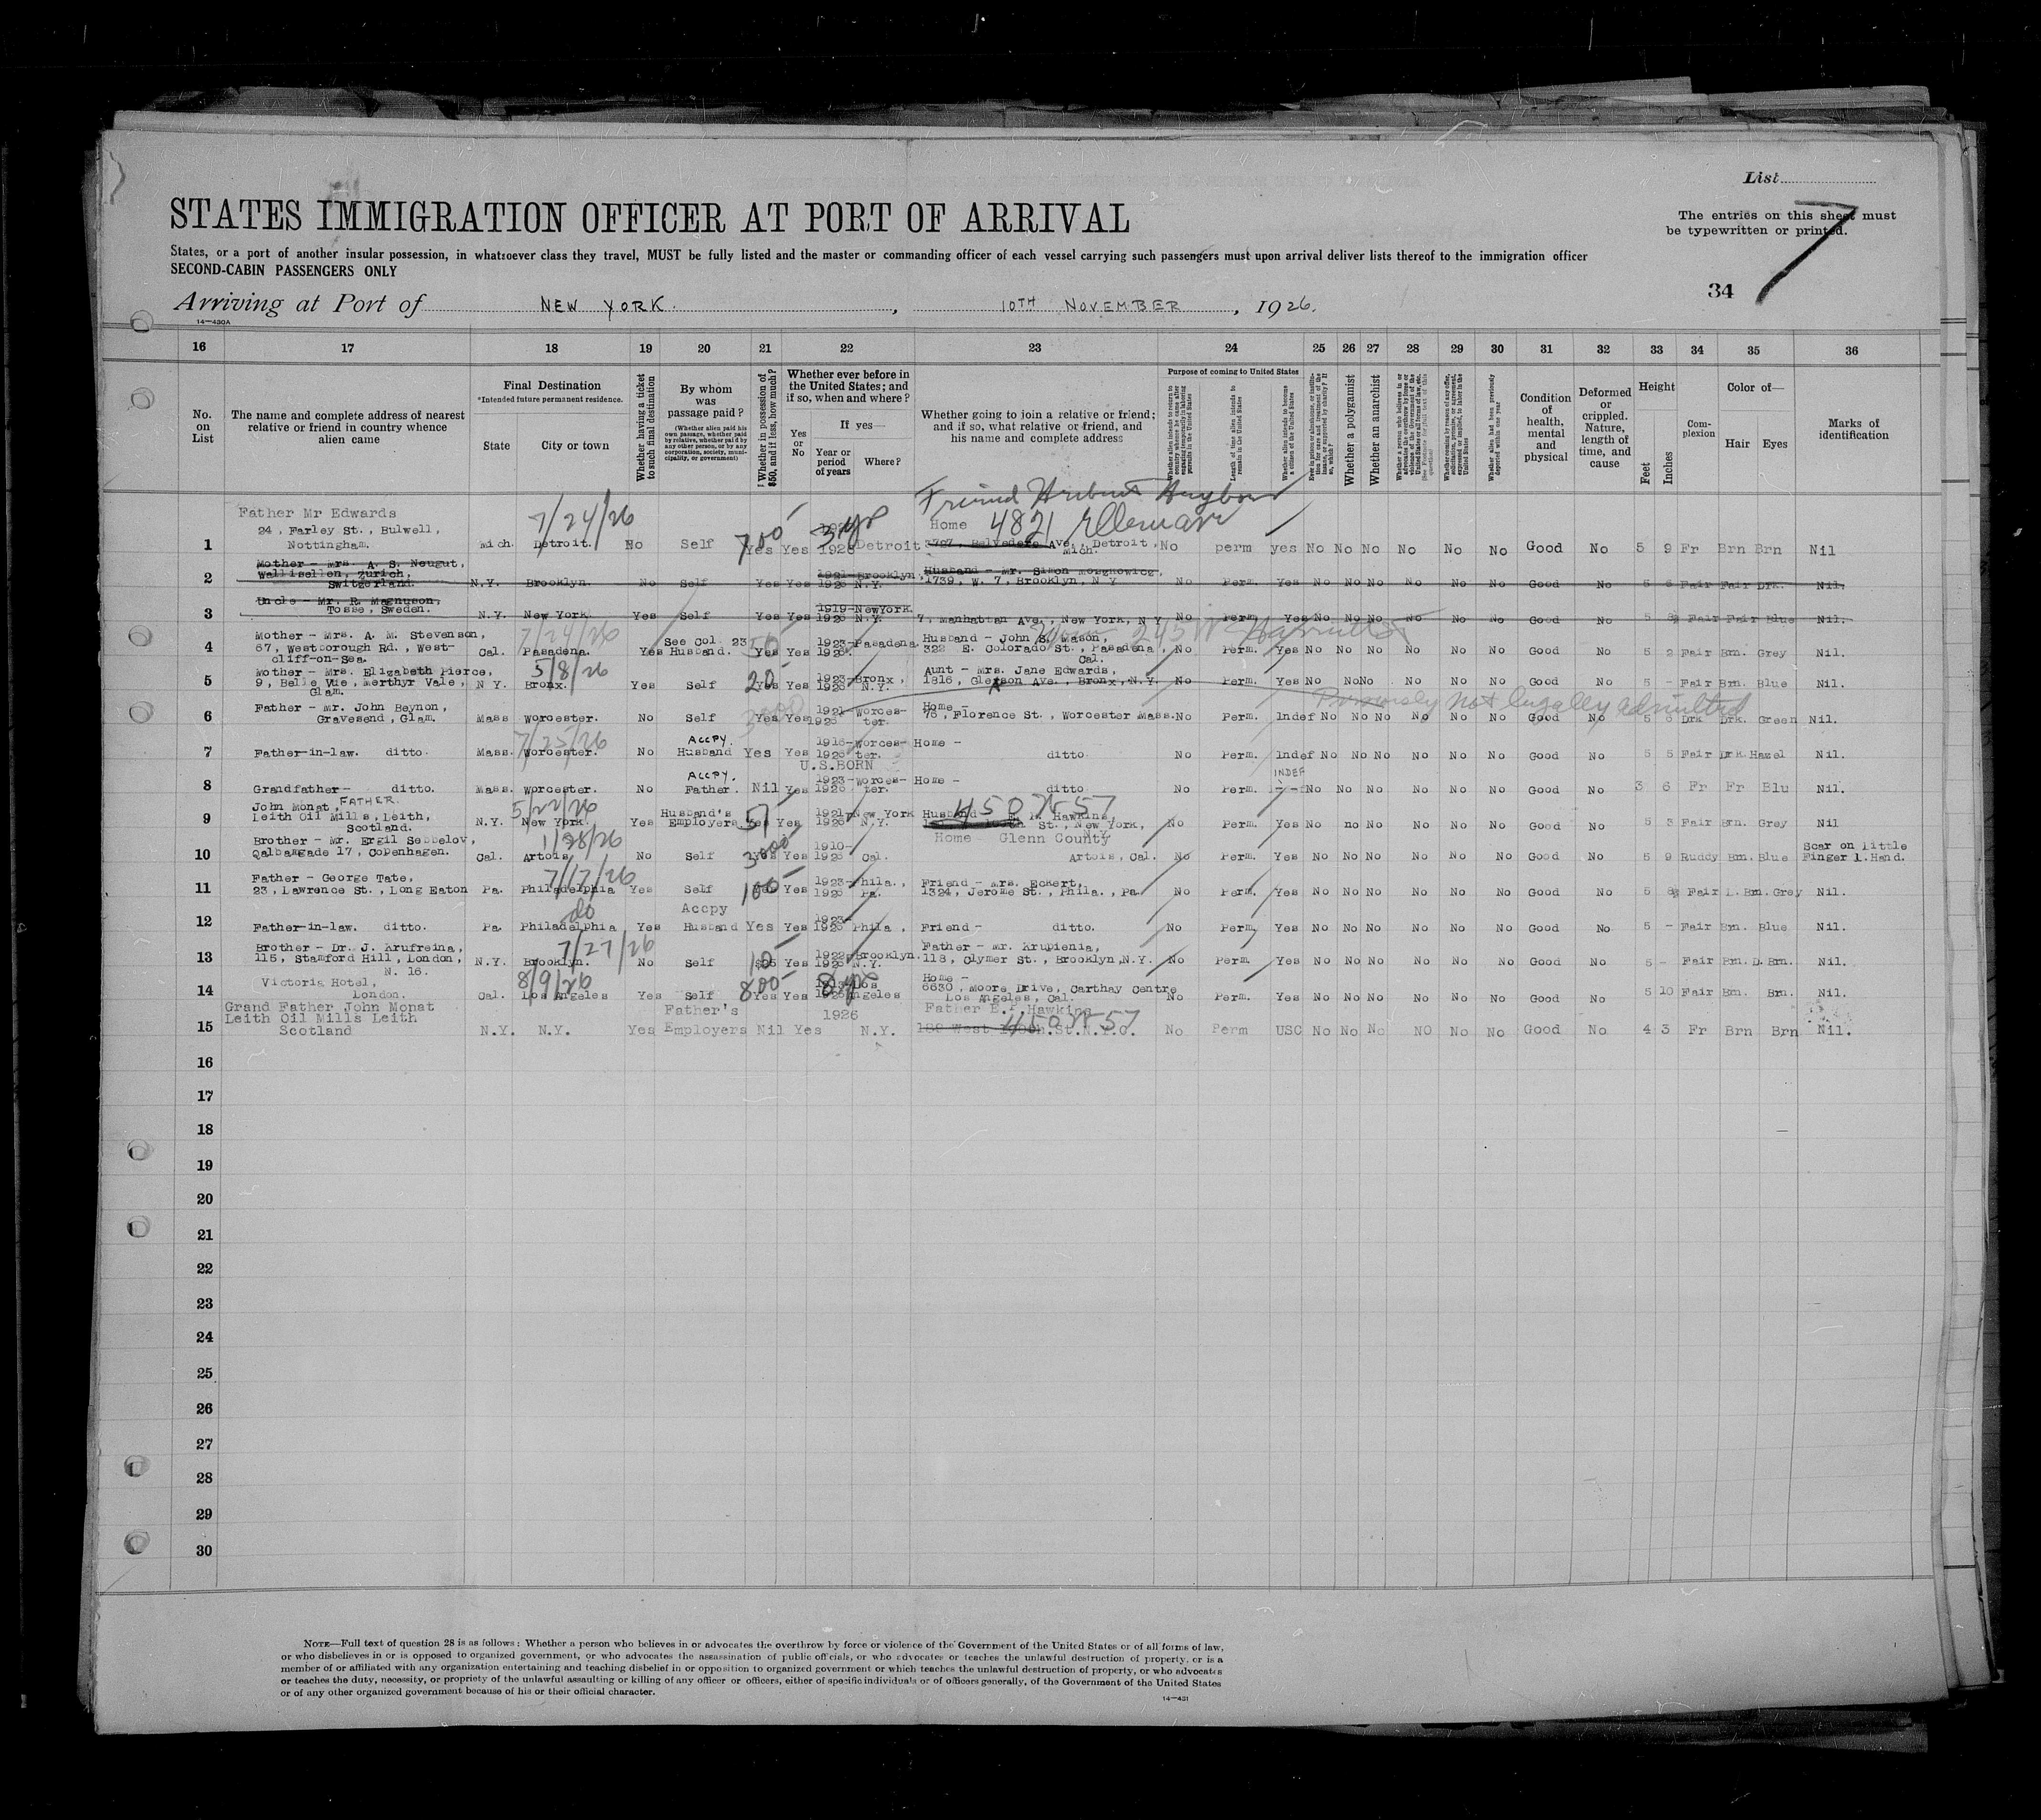 List
STATES IMMIGRATION OFFICER AT PORT OF ARRIVAL
The entries on this sheet must
be typewritten or printed.
States, or a port of another insular possession, in whatsoever class they travel, MUST be fully listed and the master or commanding officer of each vessel carrying such passengers must upon arrival deliver lists thereof to the immigration officer
SECOND-CABIN PASSENGERS ONLY
34
7
Arriving at Port of NEW YORK. , 10TH NOVEMBER , 1926.
14-430A
16 17 18 19 20 21 22 23 24 25 26 27 28 29 30 31 32 33 34 35 36
No. on List
The name and complete address of nearest relative or friend in country whence alien came
Final Destination
*Intended future permanent residence.
State City or town
Whether having a ticket to such final destination
By whom was passage paid?
(Whether alien paid his own passage, whether paid by relative, whether paid by any other person, or by any corporation, society, municipality, or government)
Whether in possession of $50, and if less, how much?
Whether ever before in the United States; and if so, when and where?
Yes or No
If yes—
Year or period of years
Where?
Whether going to join a relative or friend; and if so, what relative or friend, and his name and complete address
Purpose of coming to United States
Whether alien intends to return to country whence he came after engaging temporarily in laboring pursuits in the United States
Length of time alien intends to remain in the United States
Whether alien intends to become a citizen of the United States
Ever in prison or almshouse, or institution for care and treatment of the insane, or supported by charity? If so, which?
Whether a polygamist
Whether an anarchist
Whether alien had been previously deported within one year
Condition of health, mental and physical
Deformed or crippled. Nature, length of time, and cause
Height
Feet Inches
Complexion
Color of—
Hair Eyes
Marks of identification
Friend
Father Mr Edwards 7/24/26 Home 4821
24, Farley St., Bulwell,
1 Nottingham. Mich. Detroit. No Self 700 Yes Yes 3 yrs 1926 Detroit 3767, Belvedere Ave, Detroit, Mich. No perm yes No No No No No No Good No 5 9 Fr Brn Brn Nil
Mother - Mrs. A. S. Neugut,
Wallisellen, Zurich,
2 Switzerland. N.Y. Brooklyn. No Self Yes Yes 1921-Brooklyn, 1926 N.Y. Husband - Mr. Simon 1739, W. 7, Brooklyn, N.Y No Perm. Yes No No No No No No Good No 5 Fair Fair Drk. Nil.
Uncle - Mr. R. Magnuson,
3 Tosse, Sweden. N.Y. New York. Yes Self Yes Yes 1919-NewYork. 1926 N.Y. 7, Manhattan Ave, New York, N Y No Perm. Yes No No No No No No Good No 5 8½ Fair Fair Blue Nil.
Mother - Mrs. A. M. Stevenson, 7/24/26 See Col. 23 50 1923-Pasadena. Husband - John S. Mason, 245
4 67, Westborough Rd., West- Cal. Pasadena. Yes Husband. Yes Yes 1926. 322 E. Colorado St., Pasadena, No Perm. Yes No No No No No No Good No 5 2 Fair Brn. Grey Nil.
cliff-on-Sea. Cal.
Mother - Mrs. Elizabeth Pierce, 5/8/26 Aunt - Mrs. Jane Edwards,
5 9, Belle Vue, Merthyr Vale, N Y. Bronx. Yes Self 20 Yes Yes 1923-Bronx, 1926 N.Y. 1816, Gleason Ave., Bronx, N.Y. No Perm. Yes No No No No No No Good No 5 - Fair Brn. Blue Nil.
Glam.
Previously not legally admitted
Father - Mr. John Beynon, Home -
6 Gravesend, Glam. Mass Worcester. No Self 3000 Yes Yes 1921-Worces- 1926 ter. 76, Florence St., Worcester Mass. No Perm. Indef No No No No No No Good No 5 6 Drk Drk. Green Nil.
7/25/26 ACCPY.
7 Father-in-law. ditto. Mass. Worcester. No Husband Yes Yes 1916-Worces- 1926 ter. Home - ditto No Perm. Indef No No No No No No Good No 5 5 Fair Drk. Hazel Nil.
U.S.BORN
ACCPY. INDEF
8 Grandfather - ditto. Mass. Worcester. No Father. Nil Yes 1923-Worces- 1926 ter. Home - ditto No Perm. No No No No No No Good No 3 6 Fr Fr Blu Nil.
John Monat, FATHER 5/22/26 Husband's 1921-New York Husband 450 W 57 Hawkins,
9 Leith Oil Mills, Leith, N.Y. New York. Yes Employers 51 Yes Yes 1926 N.Y. St., New York, N.Y. No Perm. Yes No no No No No No Good No 5 3 Fair Brn. Grey Nil
Scotland.
Brother - Mr. Ergil Sebbelov, 1/28/26 3000 1910- Home - Glenn County
10 Qalbamgade 17, Copenhagen. Cal. Artois, No Self Yes Yes 1926 Cal. Artois, Cal. No Perm. Yes No No No No No No Good No 5 9 Ruddy Brn. Blue Scar on little Finger l. Hand.
Father - George Tate, 7/7/26 1923-Phila., Friend - Mrs. Eckert,
11 23, Lawrence St., Long Eaton Pa. Philadelphia Yes Self 100 Yes 1926 Pa. 1324, Jerome St., Phila., Pa No Perm. Yes No No No No No No Good No 5 8½ Fair L. Brn. Grey Nil.
do Accpy
12 Father-in-law. ditto. Pa. Philadelphia Yes Husband Yes Yes 1923- 1926 Phila, Friend - ditto. No Perm, Yes No No No No No No Good No 5 - Fair Brn. Blue Nil.
Brother - Dr. J. Krufreina, 7/27/26 1922-Brooklyn. Father - Mr. Krupienia,
13 115, Stamford Hill, London, N.Y. Brooklyn. No Self 10 $25 Yes 1926 N.Y. 118, Clymer St., Brooklyn, N.Y. No Perm. Yes No No No No No No Good No 5 - Fair Brn. D. Brn. Nil.
N. 16.
Victoria Hotel, 8/9/26 Home -
14 London. Cal. Los Angeles Yes Self 800 Yes Yes 8 yrs 1926 Angeles 6630, Moore Drive, Carthay Centre Los Angeles, Cal. No Perm. Yes No No No No No No Good No 5 10 Fair Brn. Brn. Nil.
Grand Father John Monat Father's 1926 Father E.P. Hawkins
Leith Oil Mills Leith 450 W 57
15 Scotland N.Y. N.Y. Yes Employers Nil Yes N.Y. 180 West St. N.Y.C. No Perm USC No No No NO No No Good No 4 3 Fr Brn Brn Nil.
16
17
18
19
20
21
22
23
24
25
26
27
28
29
30
NOTE—Full text of question 28 is as follows: Whether a person who believes in or advocates the overthrow by force or violence of the Government of the United States or of all forms of law,
or who disbelieves in or is opposed to organized government, or who advocates the assassination of public officials, or who advocates or teaches the unlawful destruction of property, or is a
member of or affiliated with any organization entertaining and teaching disbelief in or opposition to organized government or which teaches the unlawful destruction of property, or who advocates
or teaches the duty, necessity, or propriety of the unlawful assaulting or killing of any officer or officers, either of specific individuals or of officers generally, of the Government of the United States
or of any other organized government because of his or their official character.
14-431